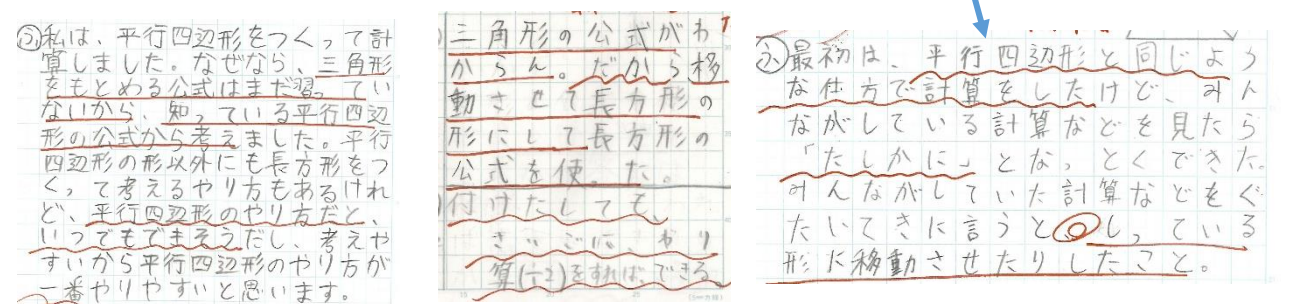 ふ 私は、平行四辺形をつくって計
算しました。なぜなら、三角形
をもとめる公式はまだ習ってい
ないから、知っている平行四辺
形の公式から考えました。平行
四辺形の形以外にも長方形をつ
くって考えるやり方もあるけれ
ど、平行四辺形のやり方だと、
いつでもできそうだし、考えや
すいから平行四辺形のやり方が
一番やりやすいと思います。
三角形の公式がわ
からん。だから移
動させて長方形の
形にして長方形の
公式を使った。
付けたしてて、
さいごに、わり
算(÷2)をすれば、できる
ふ 最初は、平行四辺形と同じよう
な仕方で計算をしたけど、みん
ながしている計算などを見たら
「たしかに」となっとくできた。
みんながしていた計算などをぐ
たいてきに言うと、しっている
形に移動させたりしたこと。